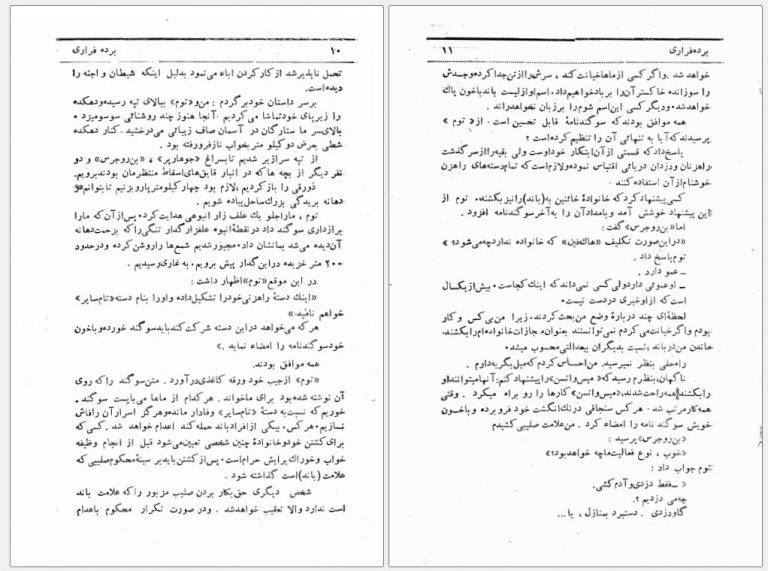 ۱۰ برده فراری
تحمل ناپذیر شد از کار کردن اباء می‌نمود بدلیل اینکه شیطان و اجنه را
دیده است.
برسر داستان خود برگردم : من و «توم» ببالای تپه رسیده و دهکده
را زیر پای خود تماشا می‌کردیم . آنجا هنوز چند روشنائی سوسو میزد .
بالای سر ما ستارگان در آسمان صاف زیبائی می‌درخشید . کنار دهکده
شطی بعرض دو کیلو متر بخواب ناز فرو رفته بود .
از تپه سرازیر شدیم تا بسراغ «جوهارپر» ، «بن روجرس» و دو
نفر دیگر از بچه ها که در انبار قایق‌های اسقاط منتظرمان بودند برویم .
ذورقی را باز کردیم ، لازم بود چهار کیلومتر پارو بزنیم تا بتوانیم در
دهانه بریدگی بزرگ ساحل پیاده شویم .
توم ، مارا جلو یك علف زار انبوهی هدایت کرد . پس از آن که مارا
برازداری سوگند داد در نقطهٔ انبوه علفزار گدار تنگی را که بزحمت دهانه
آن دیده می‌شد بما نشان داد . مجبور شدیم شمع‌ها را روشن کرده و در حدود
۲۰۰ متر خزیده در این گدار پیش برویم . به غاری رسیدیم .
در این موقع «توم» اظهار داشت :
«اینك دستهٔ راهزنی خود را تشکیل داده و اورا بنام دسته «تام سایر»
خواهم نامید»
هر که می‌خواهد در این دسته شرکت کند باید سوگند خورده و با خون
خود سوگندنامه را امضاء نماید . »
همه موافق بودند.
«توم» از جیب خود ورقه کاغذی درآورد . متن سوگند را که روی
آن نوشته شده بود برای ما خواند . هر کدام از ماها می‌بایست سوگند
خوریم که نسبت به دستهٔ «تام سایر» وفادار مانده و هرگز اسرار آن را فاش
نسازیم . هر کس. بیکی از افراد باند حمله کند اعدام خواهد شد . کسی که
برای کشتن خود و خانوادهٔ چنین شخصی تعیین می‌شود قبل از انجام وظیفه
خواب و خوراك برایش حرام است . پس از کشتن باید بر سینهٔ محکوم صلیبی که
علامت (باند) است گذاشته شود .
شخص دیگری حق بکار بردن صلیب مزبور را که علامت باند
است ندارد والا تعقیب خواهد شد . ودر صورت تکرار محکوم باعدام
برده فراری ۱۱
خواهد شد . واگر کسی از ماها خیانت کند ، سرش را از تن جدا کرده و جسدش
را سوزانده خاکستر آن را بر باد خواهیم داد. اسم او از لیست باند با خون پاك
خواهد شد و دیگر کسی این اسم شوم را بر زبان نخواهد راند .
همه موافق بودند که سوگندنامهٔ قابل تحسین است . از « توم »
پرسیدند که آیا به تنهائی آن را تنظیم کرده است ؟
پاسخ داد که قسمتی از آن ابتکار خود اوست ولی بقیه را از سرگذشت
راهزنان و دزدان دریائی اقتباس نموده و لازم است که تمام دسته‌های راهزن
خوشنام از آن استفاده کنند .
کسی پیشنهاد کرد که خانوادهٔ خائنین به (باند) را نیز بکشند . توم از
این پیشنهاد خوشش آمد و با مداد آن را به آخر سوگند نامه افزود .
اما «بن روجرس» گفت :
«در این صورت تکلیف «هاك فین» که خانواده ندارد چه می‌شود؟»
توم پاسخ داد .
ــ عمو دارد .
ــ او عموئی دارد ولی کسی نمی‌داند که اینك کجاست . بیش از یکسال
است که از او خبری در دست نیست .
لحظه‌ای چند دربارهٔ وضع من بحث کردند ، زیرا من بی‌کس و کار
بودم و اگر خیانت می‌کردم نمی‌توانستند بعنوان مجازات خانواده‌ام را بکشند.
ماندن من در باند ، نسبت بدیگران بیعدالتی محسوب میشد .
راه‌حلی بنظر نمیرسید. من احساس کردم که میل بگریه دارم .
ناگهان ، بنظرم رسید که «میس واتسن» را پیشنهاد کنم: آنها میتوانند او
را بکشند! همه راحت شدند ، «میس واتسن» کارها را رو براه میکرد . وقتی
همه کار مرتب شد . هر کس سنجاقی در نك انگشت خود فرو برده و با خون
خویش سوگند نامه را امضاء کرد . من علامت صلیبی کشیدم
«بن روجرس» پرسید :
«خوب ، نوع فعالیت ما چه خواهد بود؟»
توم جواب داد :
« ــ فقط دزدی و آدم کشی .
چه می دزدیم ؟ .
گاو دزدی . دستبرد بمنازل ، یا ...